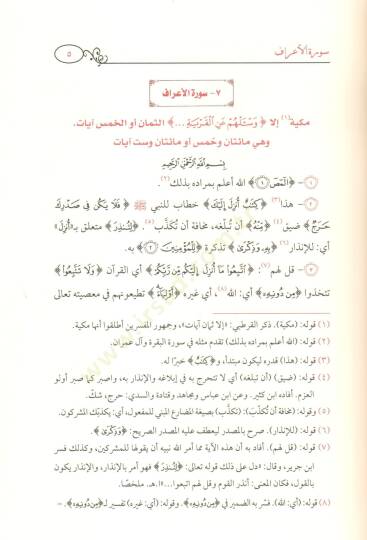 سورة الأعراف
٥
٧- سورة الأعراف
مكية(١) إلا ﴿وَسْـَٔلْهُمْ عَنِ ٱلْقَرْيَةِ ...﴾ الثمان أو الخمس آيات.
وهي مائتان وخمس أو مائتان وست آيات
بِسْمِ اللَّهِ الرَّحْمَنِ الرَّحِيمِ
١ - ﴿الٓمٓصٓ ١﴾ الله أعلم بمراده بذلك(٢).
٢ - هذا(٣) ﴿كِتَٰبٌ أُنزِلَ إِلَيْكَ﴾ خطاب للنبي ﷺ ﴿فَلَا يَكُن فِى صَدْرِكَ
حَرَجٌ﴾ ضيق(٤) ﴿مِّنْهُ﴾ أن تُبلّغه، مخافة أن تُكذَّب(٥). ﴿لِتُنذِرَ﴾ متعلق بـ«أُنزِلَ»
أي: للإنذار(٦) ﴿بِهِۦ وَذِكْرَىٰ﴾ تذكرة ﴿لِلْمُؤْمِنِينَ ٢﴾ به.
٣ - قل لهم(٧): ﴿ٱتَّبِعُوا۟ مَآ أُنزِلَ إِلَيْكُم مِّن رَّبِّكُمْ﴾ أي القرآن ﴿وَلَا تَتَّبِعُوا۟﴾
تتخذوا ﴿مِن دُونِهِۦٓ﴾ أي: الله(٨)، أي غيره ﴿أَوْلِيَآءَ﴾ تطيعونهم في معصيته تعالى
(١) قوله: (مكية). ذكر القرطبي: «إلا ثمان آيات»، وجمهور المفسرين أطلقوا أنها مكية.
(٢) قوله: (الله أعلم بمراده بذلك) تقدم مثله في سورة البقرة وآل عمران.
(٣) قوله: (هذا) قدره ليكون مبتدأ، و﴿كِتَٰبٌ﴾ خبرًا له.
(٤) قوله: (ضيق) (أن تبلغه) أي لا تتحرج به في إبلاغه والإنذار به، واصبر كما صبر أولو
العزم. أفاده ابن كثير. وعن ابن عباس ومجاهد وقتادة والسدي: حرج، شكّ.
(٥) وقوله: (مخافة أن تُكذَّب): (تكذَّب) بصيغة المضارع المبني للمفعول، أي: يكذبك المشركون.
(٦) قوله: (للإنذار). صرح بالمصدر ليعطف عليه المصدر الصريح: ﴿وَذِكْرَىٰ﴾.
(٧) قوله: (قل لهم). أفاد به أن هذه الآية مما أمر الله نبيه أن يقولها للمشركين، وكذلك فسر
ابن جرير، وقال: «دل على ذلك قوله تعالى: ﴿لِتُنذِرَ﴾ فهو أمر بالإنذار، والإنذار يكون
بالقول، فكان المعنى: أنذر القوم وقل لهم اتبعوا...» ا.هـ. ملخصًا.
(٨) قوله: (أي: الله). فسّر به الضمير في ﴿دُونِهِۦ﴾. وقوله: (أي: غيره) تفسير لـ﴿مِن دُونِهِۦ﴾. =